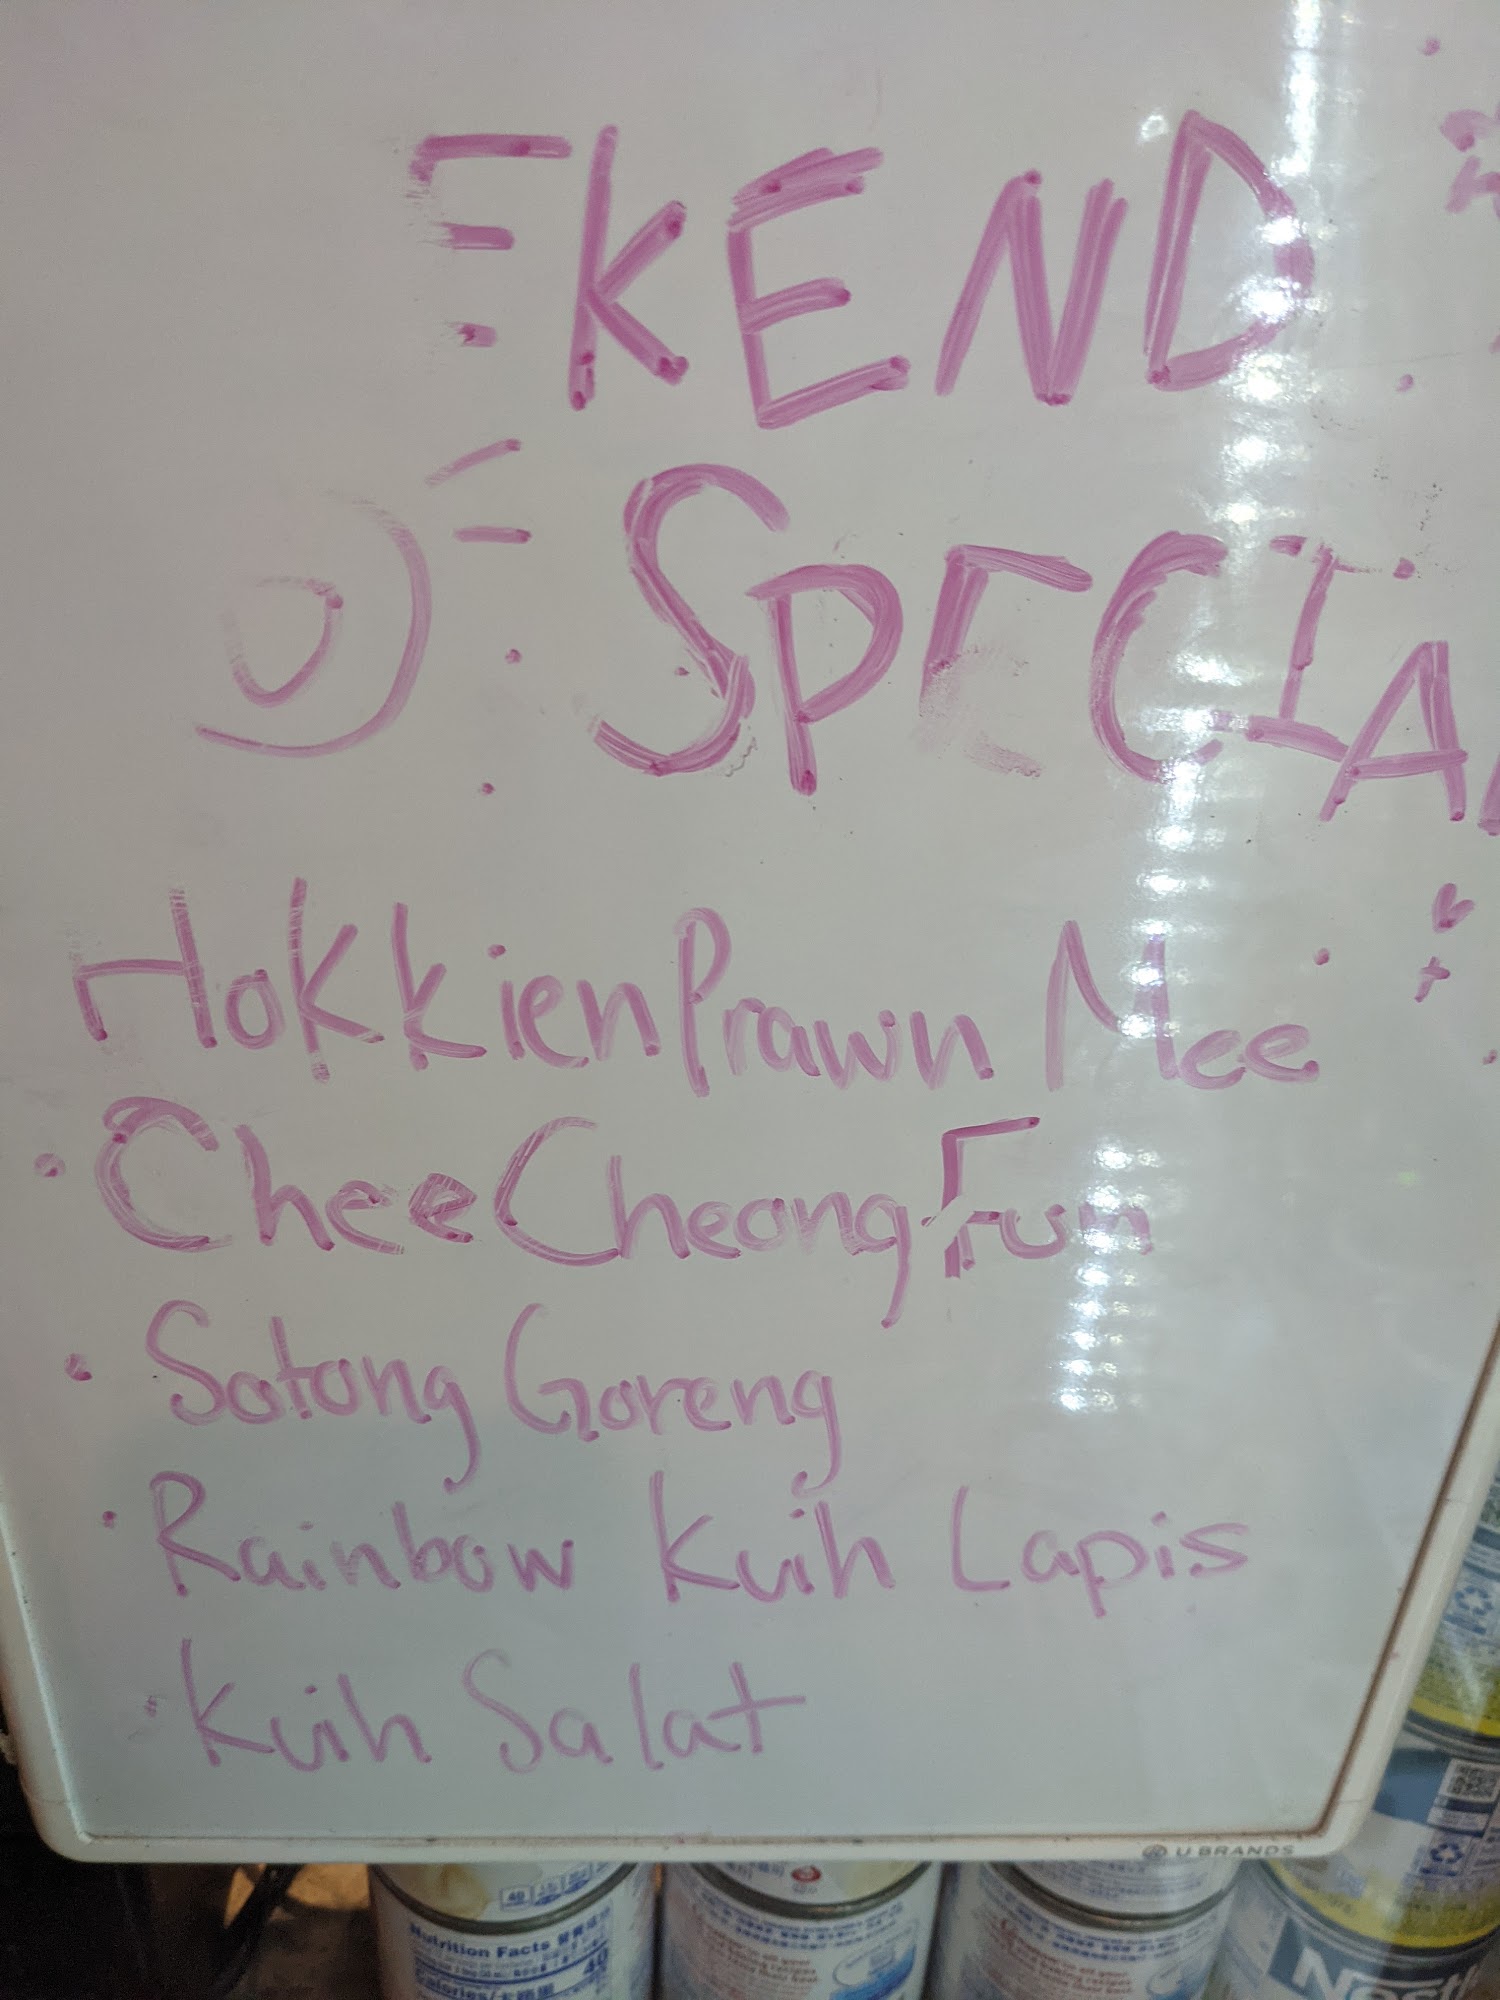 EKEND
SPECIA
Hokkien Prawn Mee
• Chee Cheong Fun
• Sotong Goreng
• Rainbow Kuih Lapis
• Kuih Salat
U BRANDS
Nutrition Facts
Calories/
40
Nest